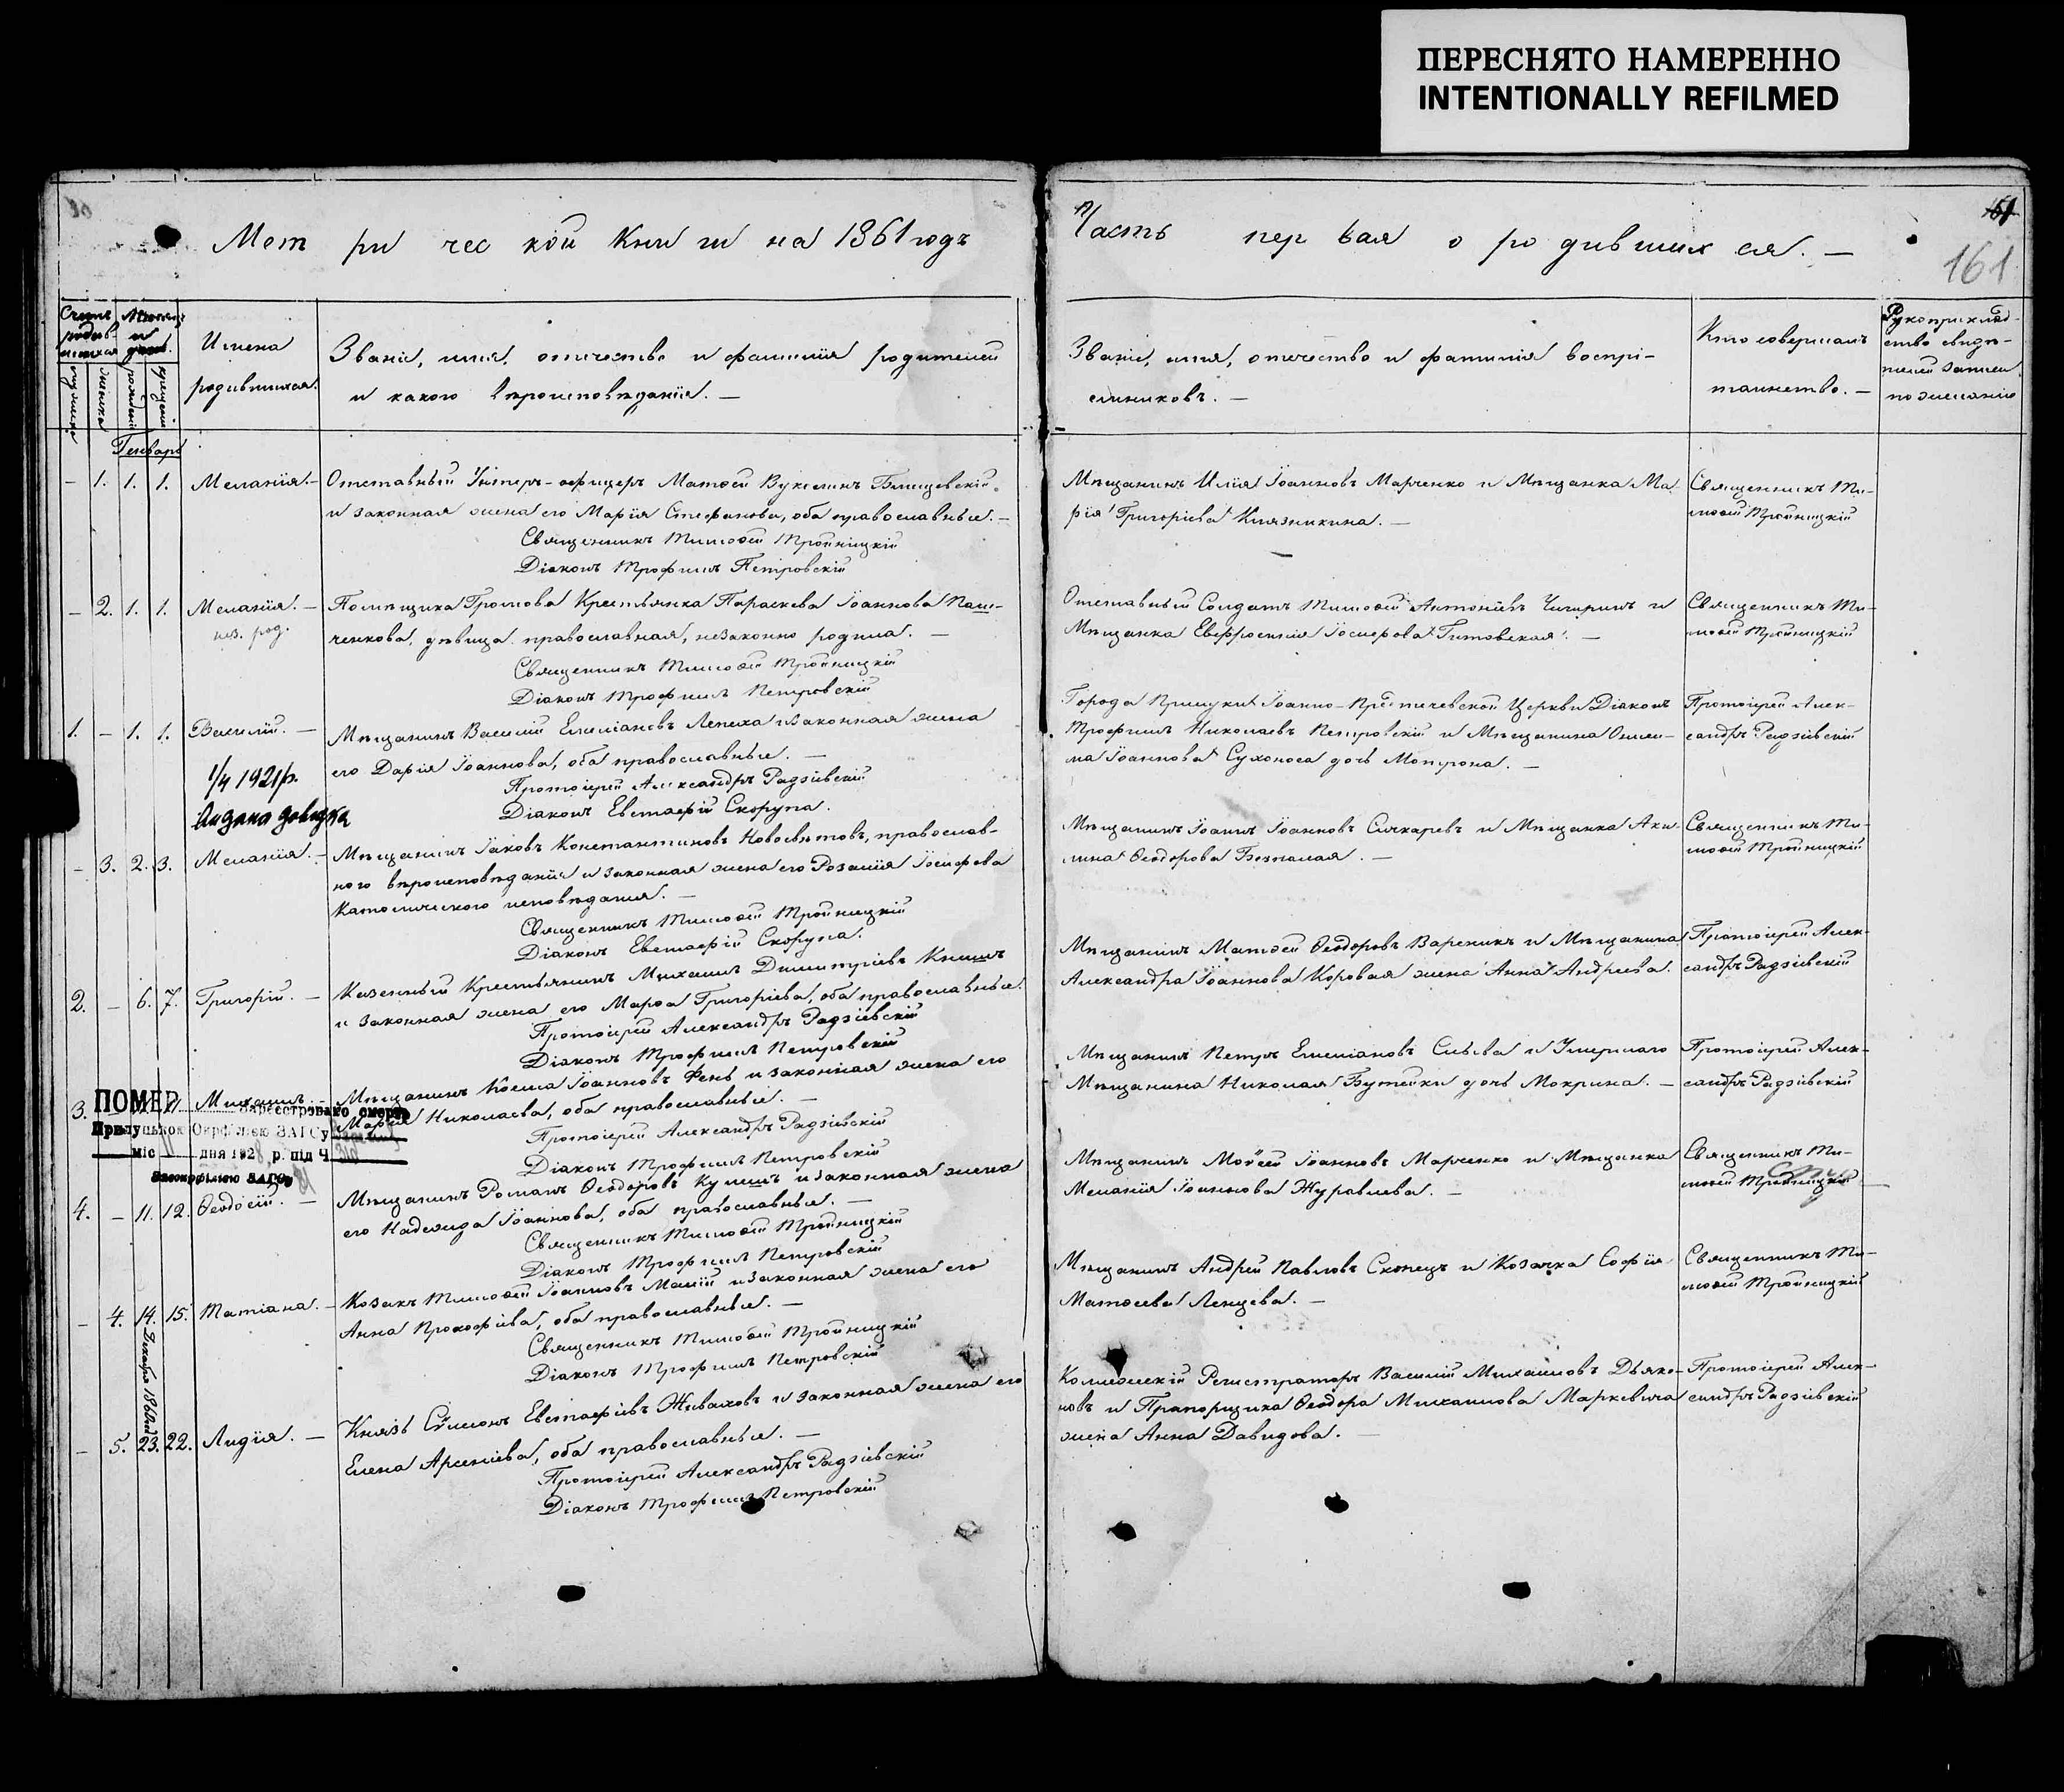 ПЕРЕСНЯТО НАМЕРЕННО
INTENTIONALLY REFILMED
Метрической Книги на 1861 годъ
Часть первая о родившихся. —
161
Счетъ родив-шихся
Мѣсяцъ и день.
мужеска
женска
рожденія
крещенія
Имена
родившихся.
Званіе, имя, отчество и фамилія родителей
и какого вѣроисповѣданія. —
Званіе, имя, отчество и фамилія воспрі-
емниковъ. —
Кто совершалъ
таинство. —
Рукоприклад-
ство свидѣ-
телей записи
по желанію
Генварь
— 1. 1. 1. Меланія. —
Отставный Унтеръ-офицеръ Матѳей
и законная жена его Марія Стефанова, оба православные. —
Священникъ Тимоѳей Тройницкій
Діаконъ Трофимъ Петровскій
Мѣщанинъ Илія Іоанновъ Марченко и Мѣщанка Ма-
рія Григоріева Княжникина. —
Священникъ Ти-
моѳей Тройницкій
— 2. 1. 1. Меланія. —
нез. род.
Помѣщика Громова Крестьянка Параскева Іоаннова Паш-
ченкова, дѣвица православная, незаконно родила. —
Священникъ Тимоѳей Тройницкій
Діаконъ Трофимъ Петровскій
Отставный Солдатъ Тимоѳей Антоніевъ Чигиринъ и
Мѣщанка Евфросинія Іосифова Гитовская. —
Священникъ Ти-
моѳей Тройницкій
1. — 1. 1. Василій. —
1/4 1921 р.
Видана довідка
Мѣщанинъ Василій Емиліановъ Лепеха и законная жена
его Дарія Іоаннова, оба православные. —
Протоіерей Александръ Радзіевскій
Діаконъ Евстафій Скорупа.
Города Прилуки Іоанно-Прⷣтичевской Церкви Діаконъ
Трофимъ Николаевъ Петровскій и Мѣщанина Ониси-
ма Іоаннова Сухоноса дочь Мотрона. —
Протоіерей Алек-
сандръ Радзіевскій
— 3. 2. 3. Меланія. —
Мѣщанинъ Іаковъ Константиновъ Новосвѣтовъ, православ-
наго вѣроисповѣданія и законная жена его Розалія Іосифова
Католическаго исповѣданія. —
Священникъ Тимоѳей Тройницкій
Діаконъ Евстафій Скорупа.
Мѣщанинъ Іоаннъ Іоанновъ Слѣкаревъ и Мѣщанка Аки-
лина Ѳеодорова Безпалая. —
Священникъ Ти-
моѳей Тройницкій
2. — 6. 7. Григорій. —
Казенный Крестьянинъ Михаилъ Димитріевъ Книшъ
и законная жена его Марѳа Григоріева, оба православные.
Протоіерей Александръ Радзіевскій
Діаконъ Трофимъ Петровскій
Мѣщанинъ Матѳей Ѳеодоровъ Вареникъ и Мѣщанина
Александра Іоаннова Коровая жена Анна Андреева.
Протоіерей Алек-
сандръ Радзіевскій
3. Михаилъ. —
ПОМЕР
Зареєстровано смерть
Прилуцькою Окрфілією ЗАГСу
міс дня 1928 р. під Ч.
Завокрфілією ЗАГСу
Мѣщанинъ Косма Іоанновъ Фень и законная жена его
Марія Николаева, оба православные. —
Протоіерей Александръ Радзіевскій
Діаконъ Трофимъ Петровскій
Мѣщанинъ Петръ Емиліановъ Сильва и Умершаго
Мѣщанина Николая Бутейки дочь Мокрина. —
Протоіерей Алек-
сандръ Радзіевскій
4. — 11. 12. Ѳеодосій. —
Мѣщанинъ Романъ Ѳеодоровъ Кулишъ и законная жена
его Надежда Іоаннова, оба православные. —
Священникъ Тимоѳей Тройницкій
Діаконъ Трофимъ Петровскій
Мѣщанинъ Моѵсей Іоанновъ Марченко и Мѣщанка
Меланія Іоаннова Журавлева. —
Священникъ Ти-
моѳей Тройницкій
— 4. 14. 15. Татіана. —
Козакъ Тимоѳей Іоанновъ Малій и законная жена его
Анна Прокофіева, оба православные. —
Священникъ Тимоѳей Тройницкій
Діаконъ Трофимъ Петровскій
Мѣщанинъ Андрей Павловъ Скопецъ и Козачка Софія
Матѳеева Ленцева. —
Священникъ Ти-
моѳей Тройницкій
Декабря 1860 года
— 5. 23. 22. Лидія. —
Князь Сѵмеонъ Евстафіевъ Живаховъ и законная жена его
Елена Арсеніева, оба православные. —
Протоіерей Александръ Радзіевскій
Діаконъ Трофимъ Петровскій
Коллежскій Регистраторъ Василій Михаиловъ Дьяко-
новъ и Прапорщика Ѳеодора Михаилова Маркевича
жена Анна Давидова. —
Протоіерей Алек-
сандръ Радзіевскій